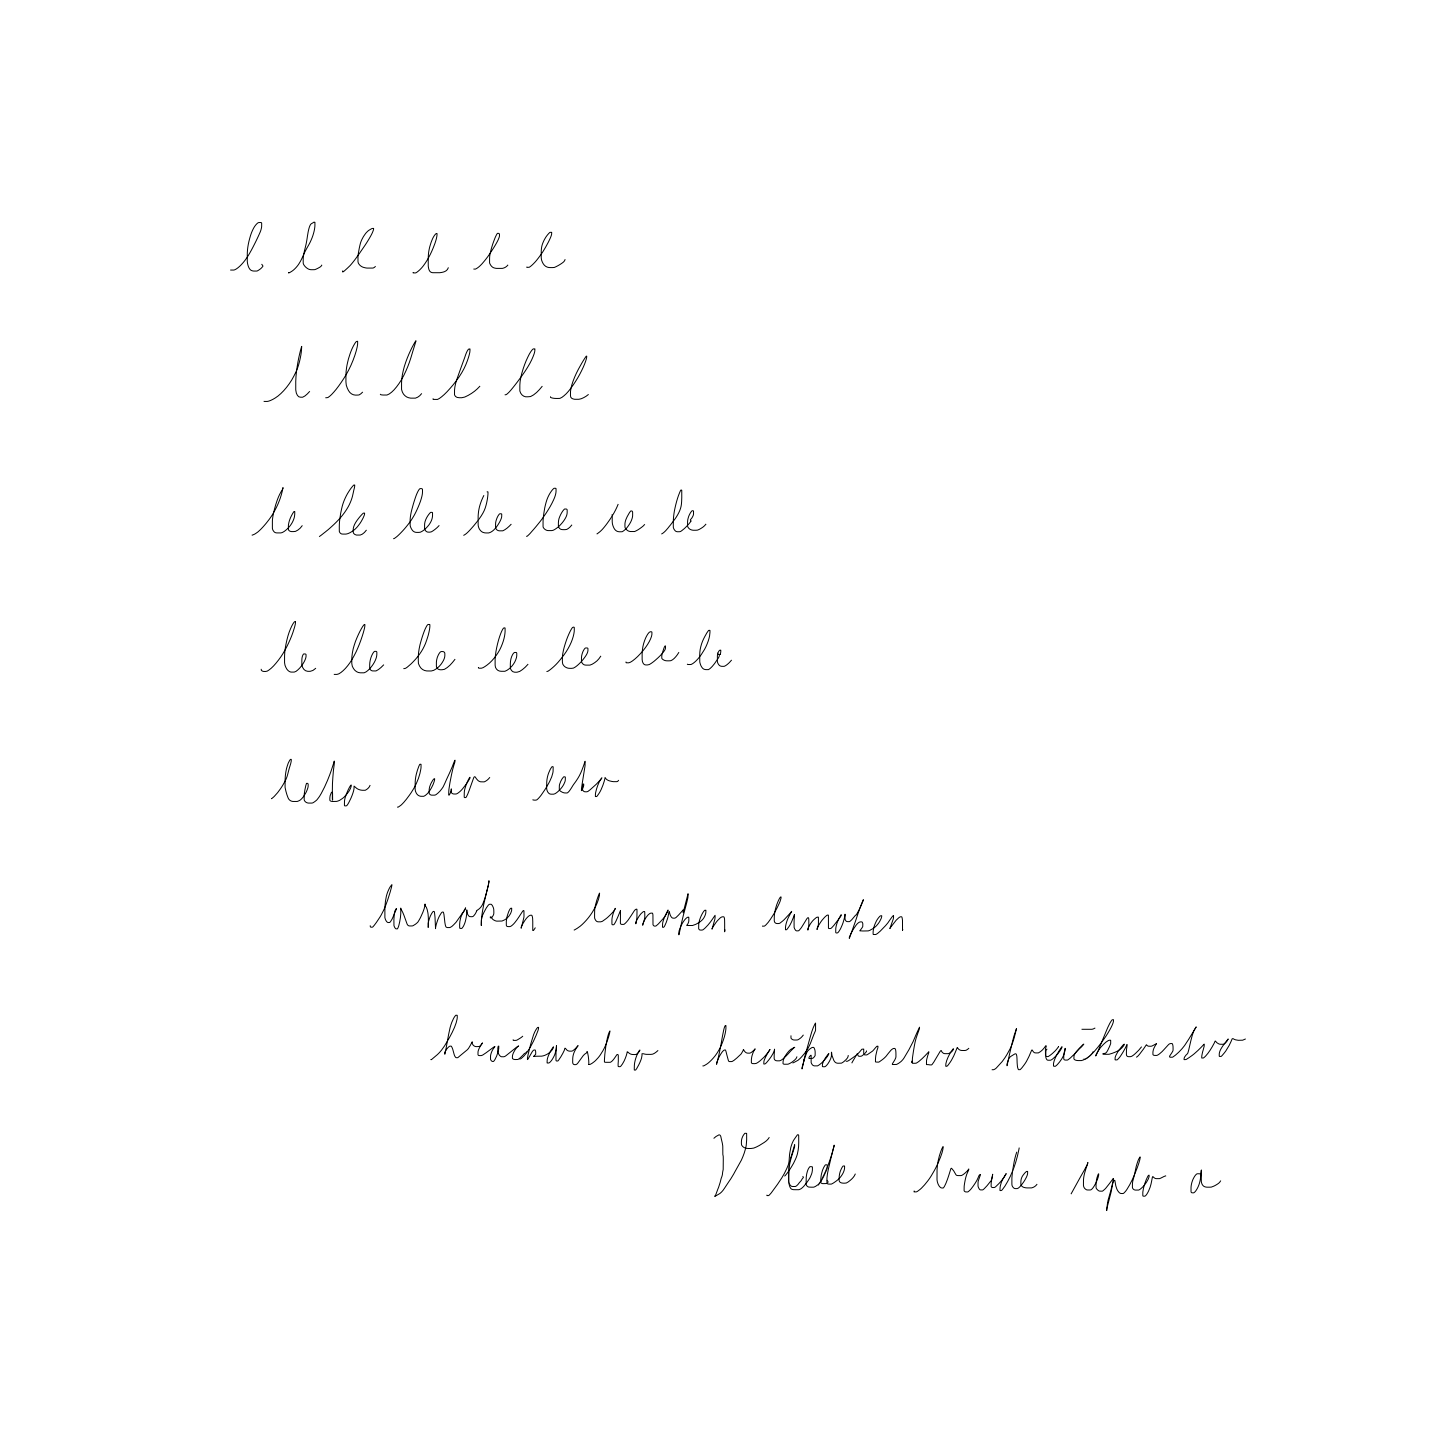 l l l l l l
l l l l l l
le le le le le le le
le le le le le le le
leto leto leto
lamoken lamoken lamoken
hračkarstvo hračkarstvo hračkarstvo
V lese bude teplo a